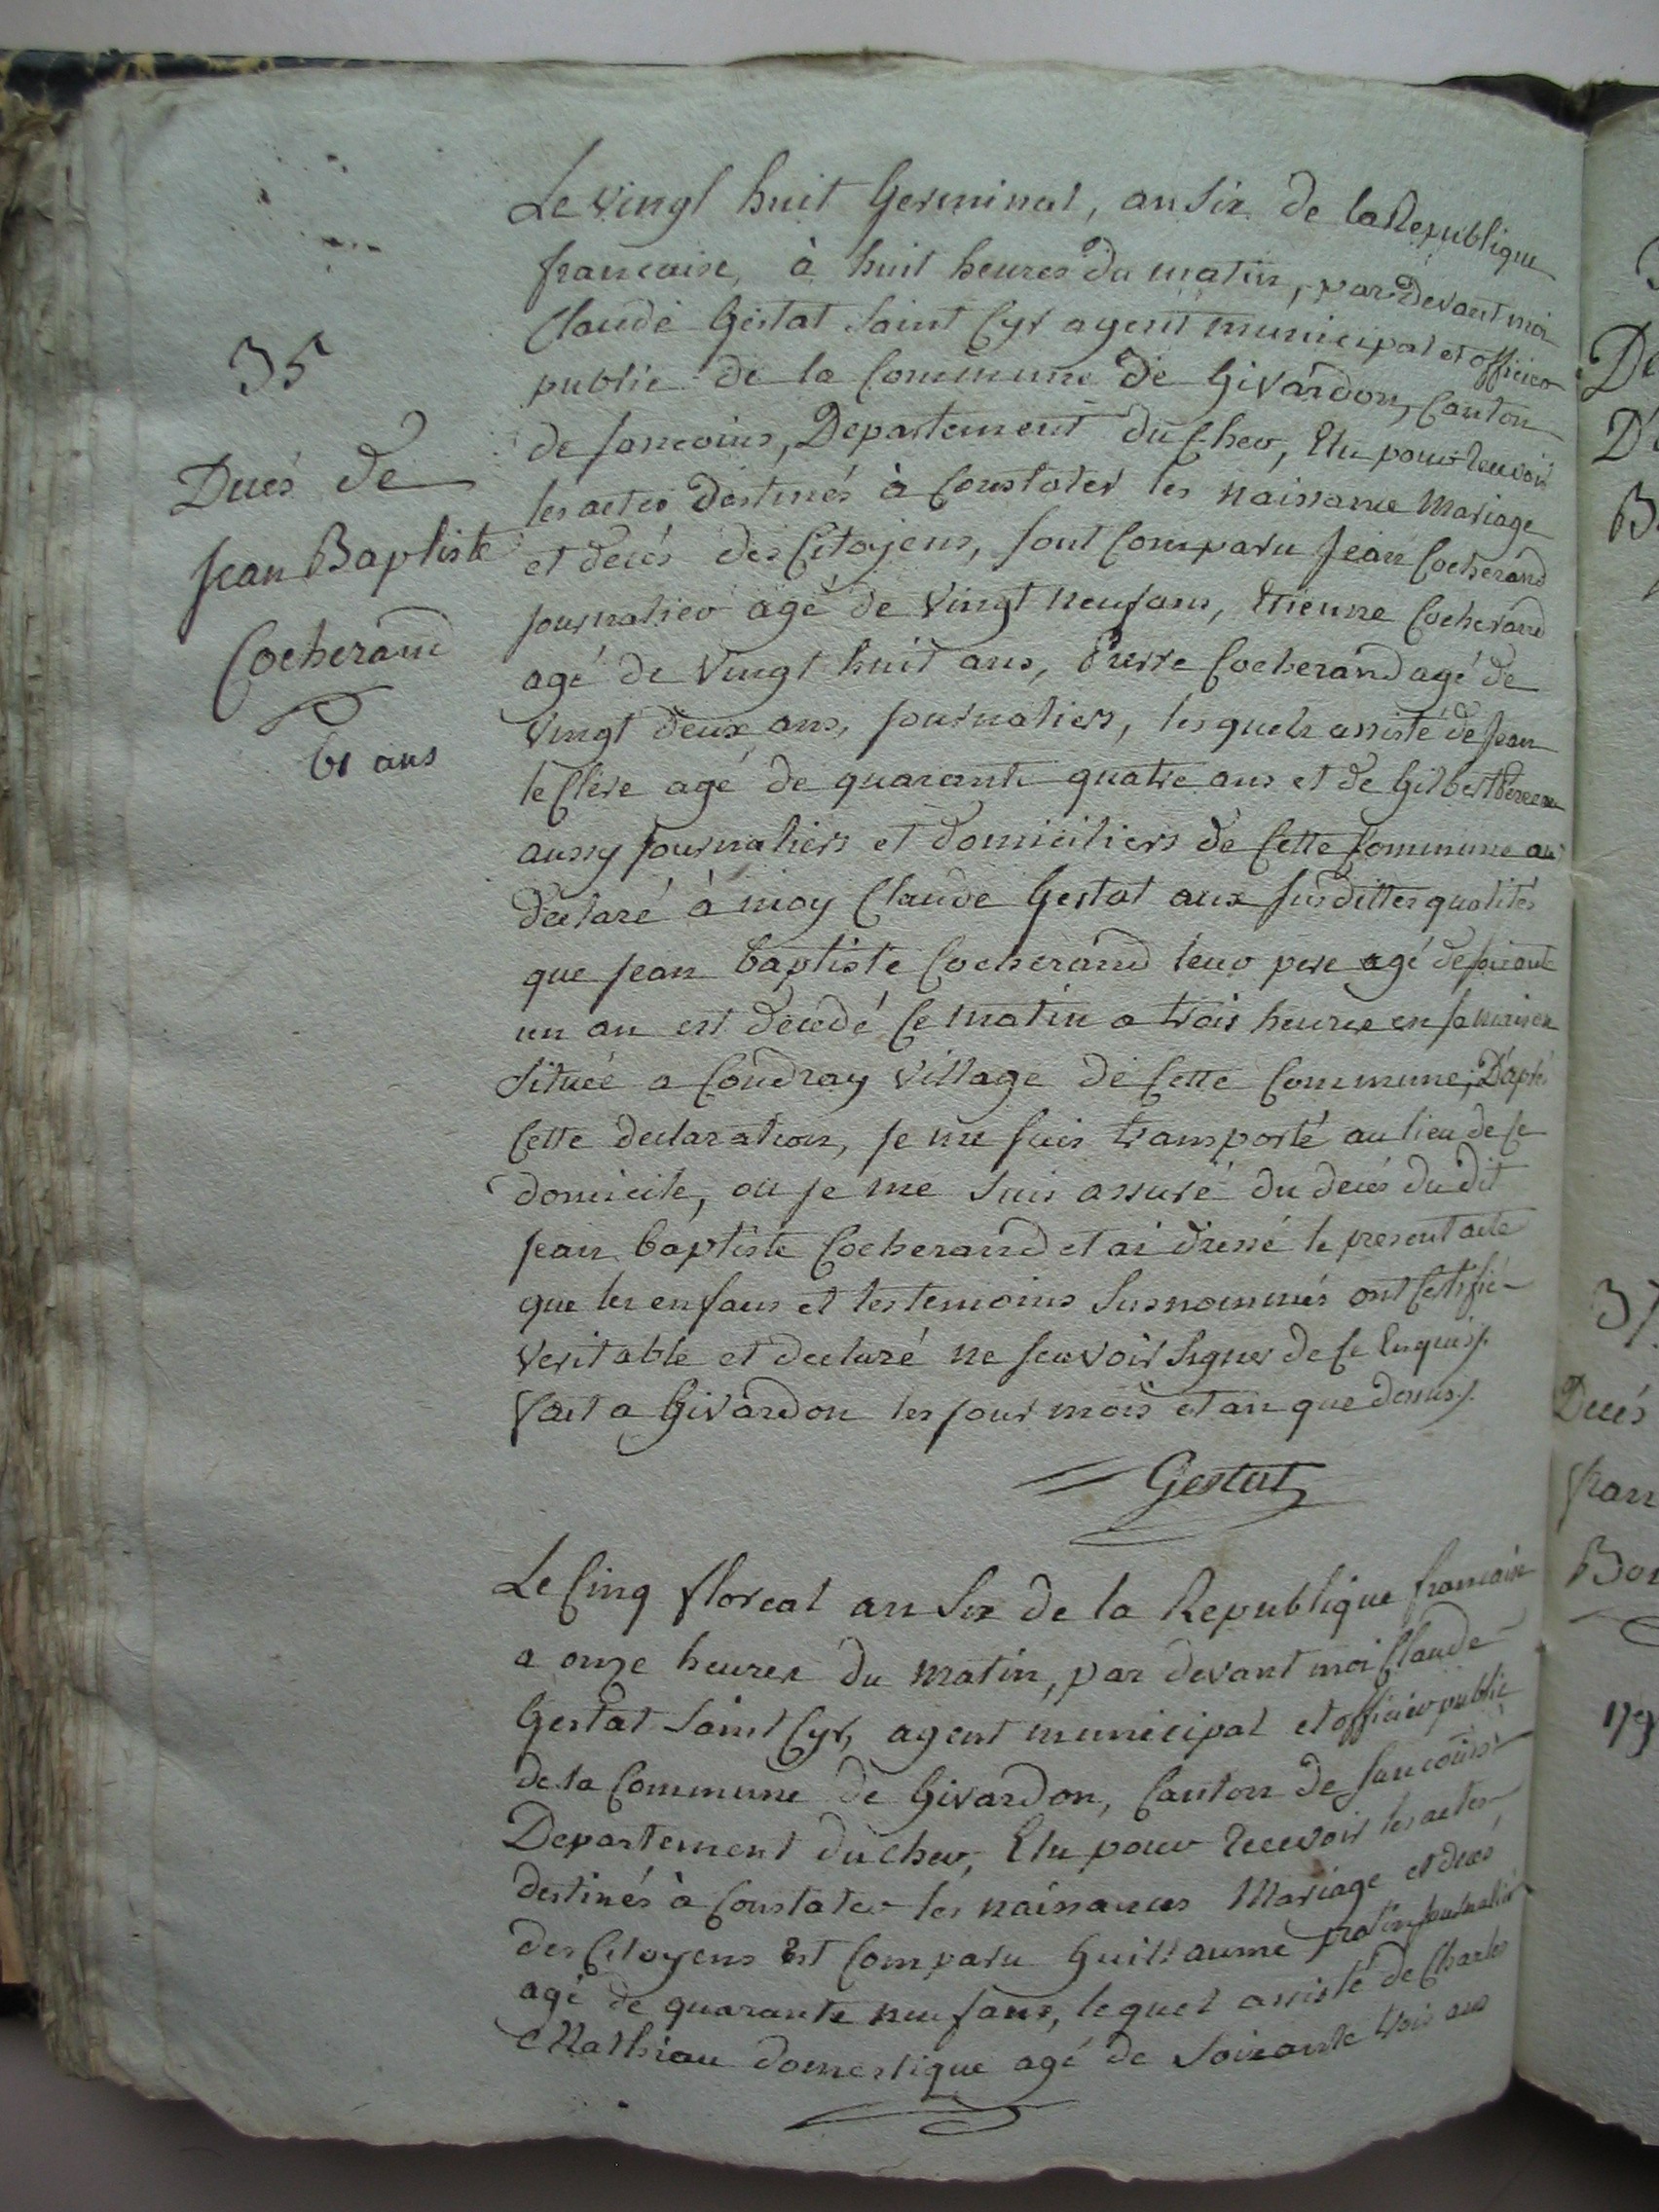 35
Decés de
Jean Baptiste
Cocherand
61 ans
Le vingt huit Germinal, an Six de la Republique
francaise, à huit heures du matin, par devant moi
Claude Gestat Saint Cyr agent municipal et officier
public de la Commune de Givardon, Canton
de Sancoins, Departement du Cher, Elu pour recevoir
les actes destinés à Constater les naissance Mariage
et decés des Citoyens, sont Comparu Jean Cocherand
journalier agé de vingt neuf ans, Etienne Cocherand
agé de vingt huit ans, Pierre Cocherand agé de
vingt deux ans, journaliers, lesquels assisté de Jean
le Clere agé de quarante quatre ans et de Gilbert
aussy journaliers et domiciliers de Cette Commune
declaré à moy Claude Gestat aux susdittes qualités
que Jean baptiste Cocherand leur pere agé de soixante
un an est decedé Ce matin a trois heures en sa maison
Située a Coudray village de Cette Commune, D'après
Cette declaration, Je me suis transporté au lieu de Ce
domicile, ou je me suis assuré du decés du dit
Jean baptiste Cocherand et ai dressé le present acte
que les enfans et les temoins Susnommés ont Certifié
veritable et declaré ne scavoir signer de Ce Enquis /.
fait a Givardon les jour mois et an que dessus /.
Gestat
Le Cinq floreal an Six de la Republique francaise
a onze heures du matin, par devant moi Claude
Gestat Saint Cyr, agent municipal et officier public
de la Commune de Givardon, Canton de Sancoins
Departement du Cher, Elu pour recevoir les actes
destinés à Constater les naissances Mariage et decés
des Citoyens Est Comparu Guillaume journalier
agé de quarante neuf ans, lequel assisté de Charles
Mathiau domestique agé de Soixante trois ans
De
37.
Decés